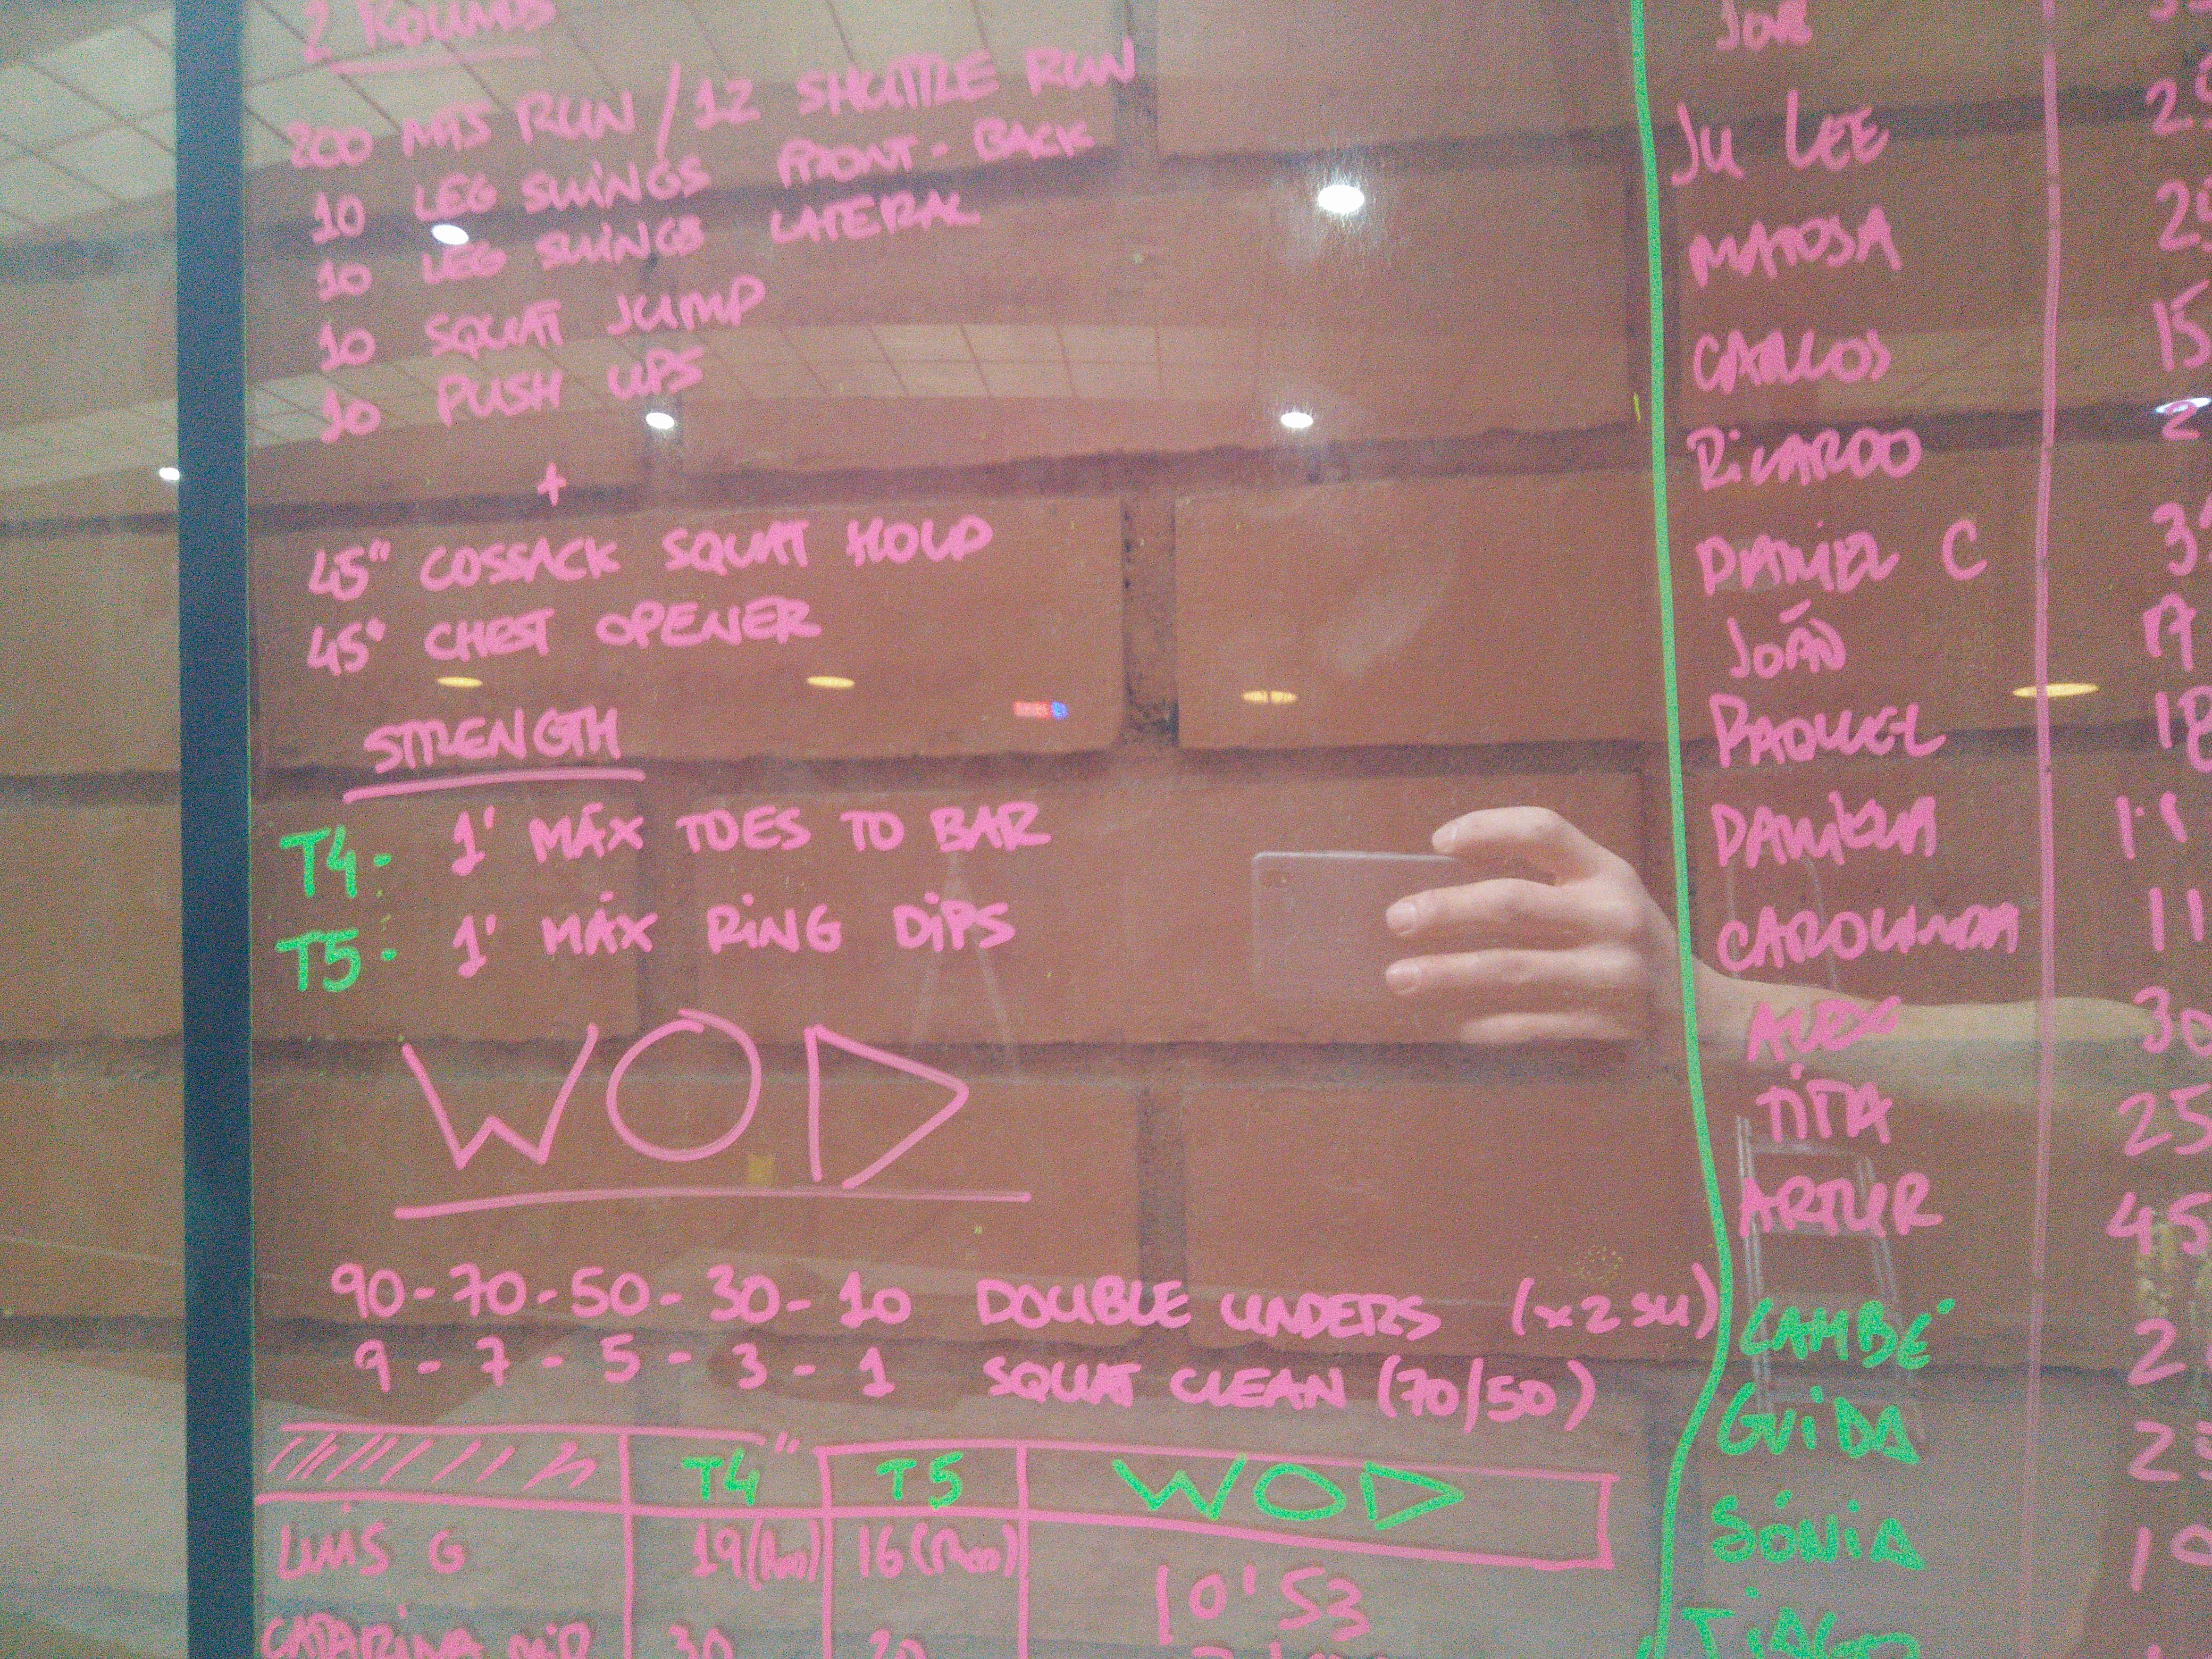 2 ROUNDS
200 MTS RUN / 12 SHUTTLE RUN
10 LEG SWINGS FRONT - BACK
10 LEG SWINGS LATERAL
10 SQUAT JUMP
10 PUSH UPS
+
45" COSSACK SQUAT HOLD
45" CHEST OPENER
STRENGTH
T4- 1' MÁX TOES TO BAR
T5- 1' MÁX RING DIPS
WOD
90-70-50-30-10 DOUBLE UNDERS (x2 SU)
9-7-5-3-1 SQUAT CLEAN (70/50)
T4 T5 WOD
LUÍS G 19 16 10'53
CATARINA 30 20
JU LEE
MATOSA
CARLOS 15
RICARDO 2
DANIEL C
JOÃO 17
RAQUEL 18
DANIELA
CAROLINDA 11
ALEX 30
TITA 25
ARTUR 45
CAMBÉ
GUIDA
SÓNIA
TIAGO